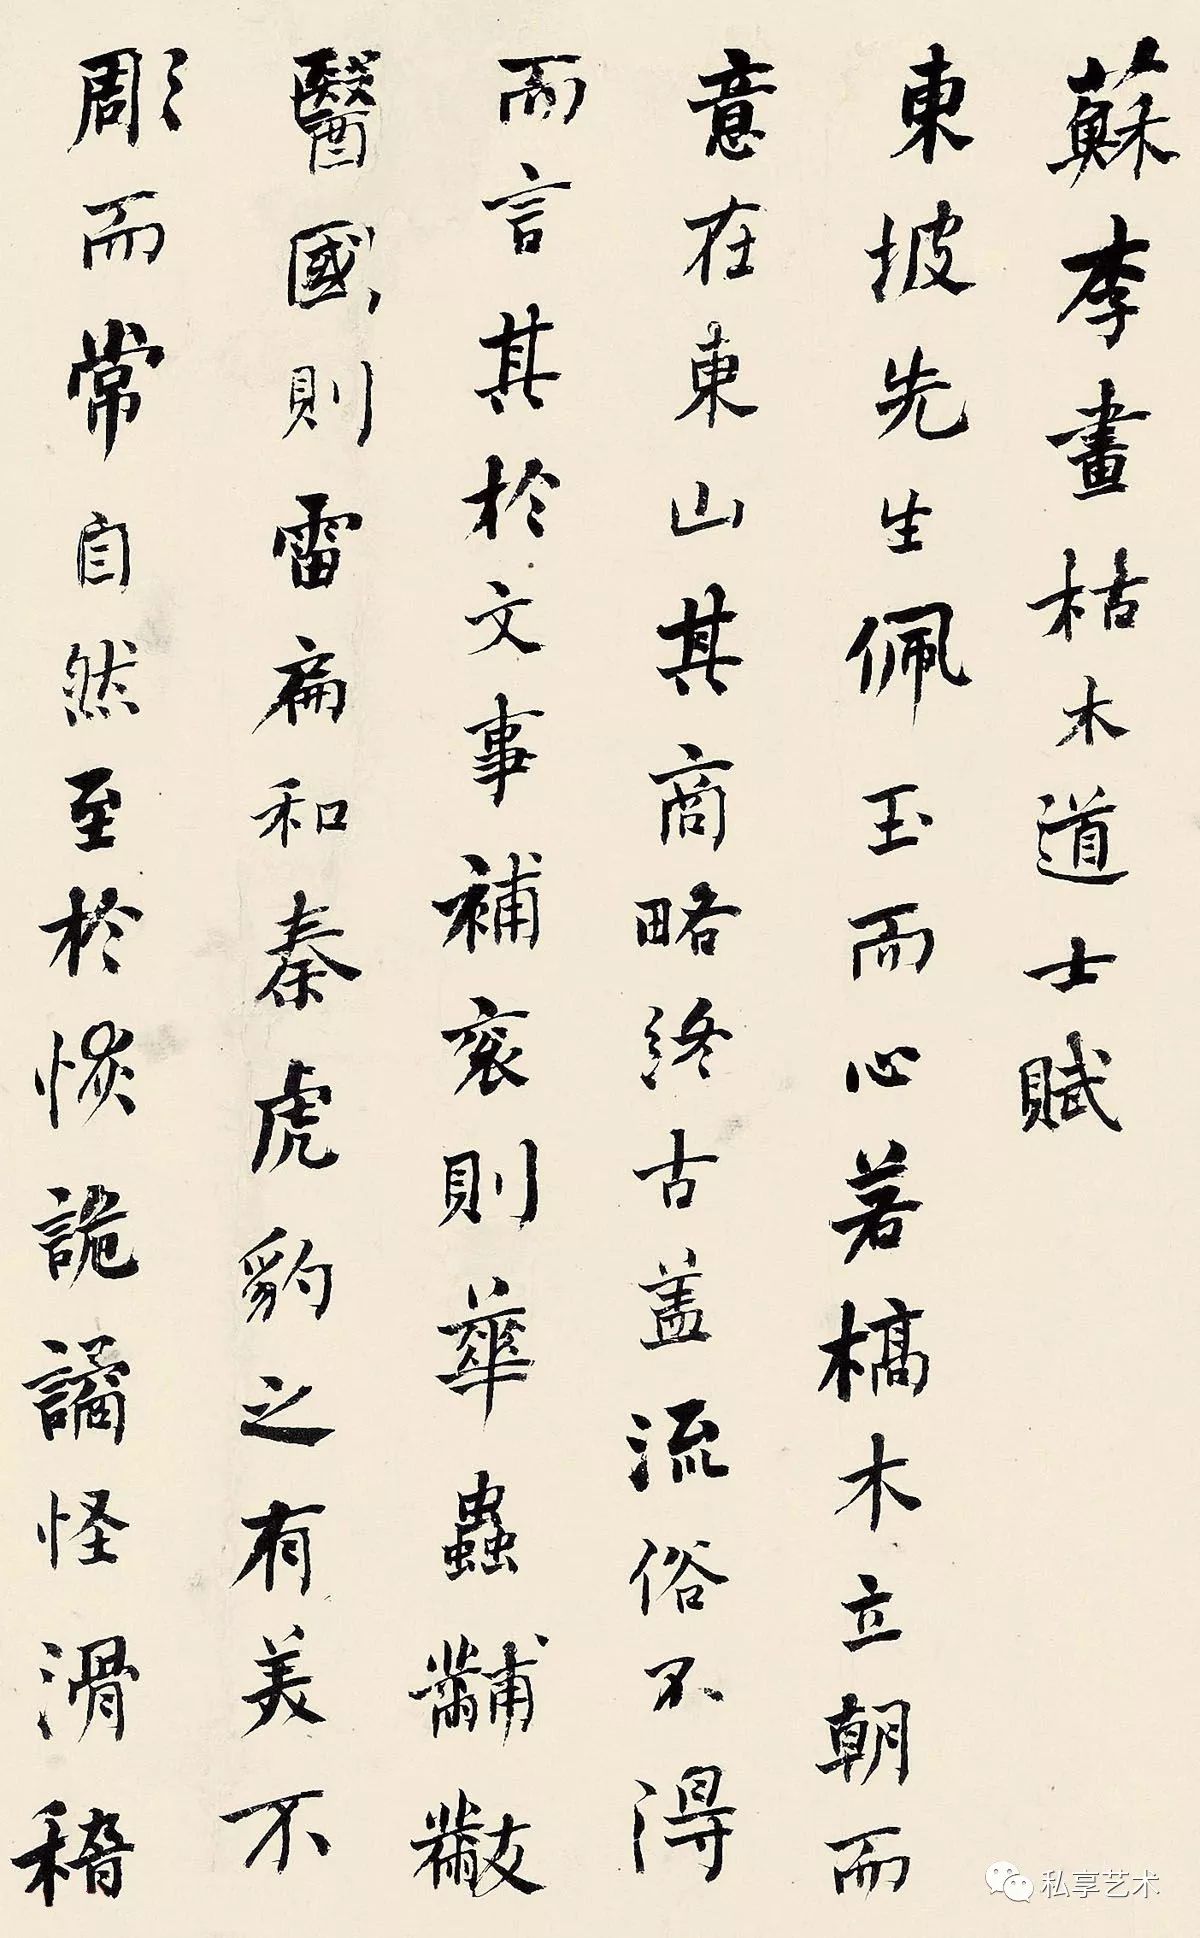 蘇李畫枯木道士賦
東坡先生佩玉而心若槁木立朝而
意在東山其商略終古盖流俗不得
而言其於文事補衮則華蟲黼黻
醫國則雷扁和秦虎豹之有美不
彫而常自然至於恢詭譎怪滑稽
私享艺术